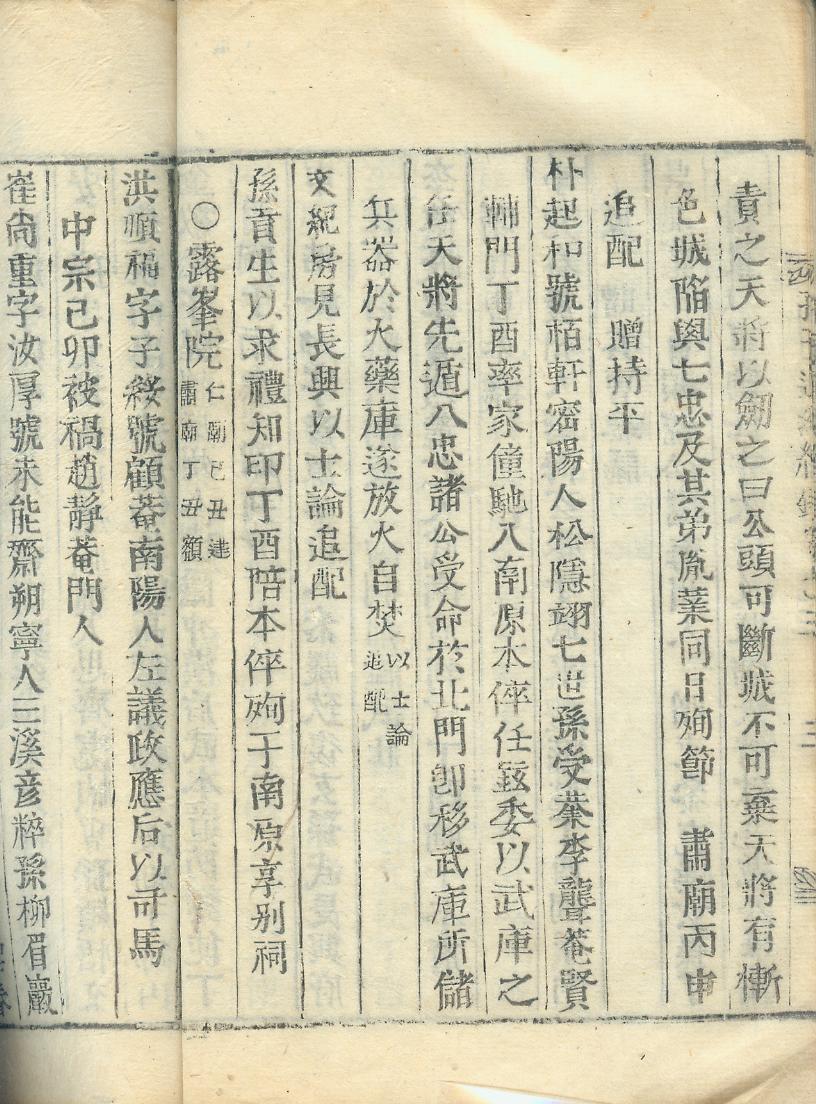 責之天將以劒之曰公頭可斷城不可棄天將有慚
色城陷與七忠及其弟胤葉同日殉節　肅廟丙申
追配　贈持平
朴起和號栢軒密陽人松隱翊七世孫受業李聾菴賢
輔門丁酉率家僮馳入南原本倅任鉉委以武庫之
任天將先遁八忠諸公受命於北門卽移武庫所儲
兵器於火藥庫遂放火自焚以士論追配
文紀房見長興以士論追配
孫貢生以求禮知印丁酉陪本倅殉于南原享别祠
○露峯院仁廟己丑建肅廟丁丑額
洪順福字子綏號顧菴南陽人左議政應后以司馬
中宗己卯被禍趙靜菴門人
崔尙重字汝厚號未能齋朔寧人三溪彦粹孫柳眉巖